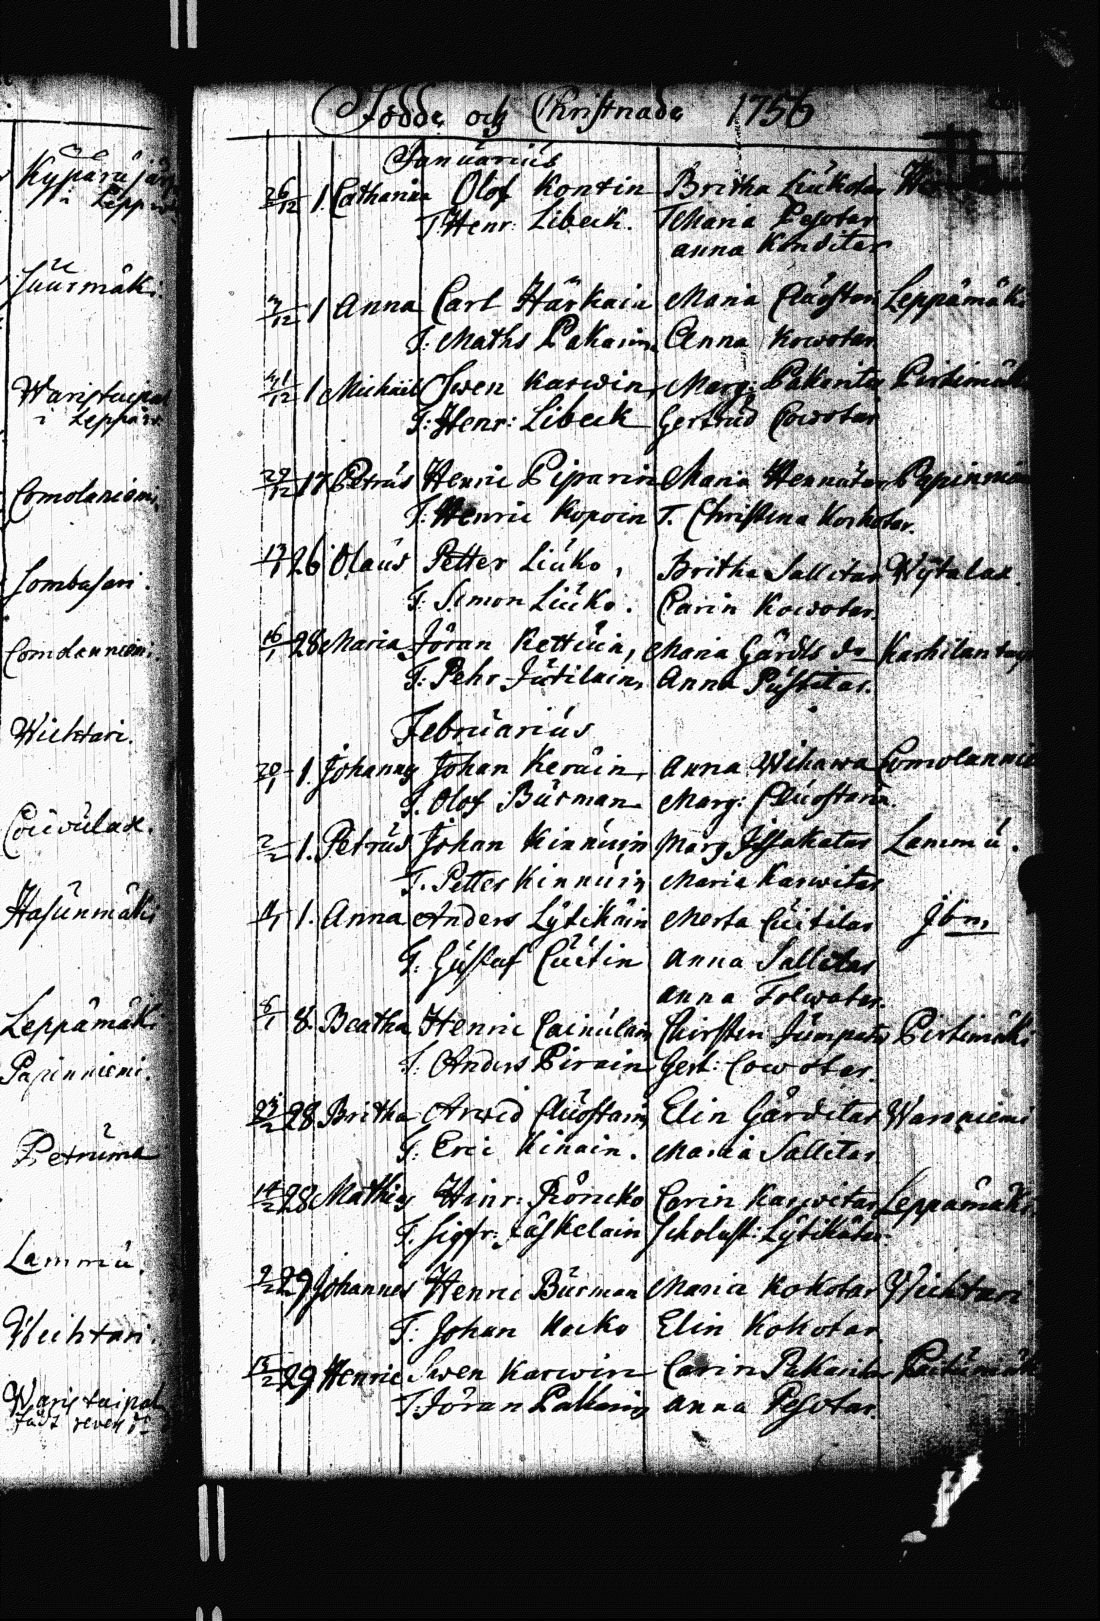 Kypärüjär
i Leppä
Jüürmäki.
Waristaipal
i Leppäv
Comolaniemi.
Sombasari.
Comolanniemi.
Wichtari.
Couvülax.
Hasünmäki
Leppämäki
Papinniemi.
Petrüma
Lammü.
Wichtari.
Waristaipal
Födde och Christnade 1756
Januarius
26/12 1. Catharina Olof Kontin Britha Liükotar
T. Henr: Libeck. T Maria Pesotar
anna Konditar
1 Anna Carl Härkäin Maria Cluostari Leppämäki
T. Maths Pakarin Anna Kowotar
1 Michael Swen Karwin, Marg: Pakarita Pirtimäki
T: Henr: Libeck Gertrud Cowotar
29/12 17 Petrus Henric Piparin Maria Hennütar Papinnie
T. Henric Kopoin T. Christina Korhotar.
17/1 26 Olaus Petter Liüko, Britha Sallitar Wÿtalax.
T. Simon Liüko. Carin Kowotar.
16/1 28 Maria Jöran Kettüin, Maria Gärdts dr Karhilantaip
T: Pehr Jütilain, Anna Püstitar.
Februarius
20/1 1. Johannes Johan Keräin, Anna Wihawa Comolannie
T. Olof Bürman Marg: Cluostarin.
2/2 1. Petrus Johan Kinnuin Marg. Issakatar Lammü.
T. Petter Kinnuin Maria Karwitar
1. Anna Anders Lÿtikäin Merta Cüitilar Jbm,
T. Güstaf Cüitin Anna Sallitar
Anna Tolwatar.
8/1 8. Beatha Henric Cainulain Chirstin Jümpatr Pirtimäki
T. Anders Pirain Gert: Cowotar.
28 Britha Arvid Cluostarin Elin Gärditar Warnniemi
T. Eric Kinain. Maria Sallitar
14/2 28 Mathies Hinr: Röncko Carin Karwitar Leppämäki
T. Sigfr: Laskelain Scholast: Lÿtikätar.
9/2 29 Johannes Henric Bürman Maria Kokotar Wichtari
T: Johan Kocko Elin Kokotar.
15/2 29 Henric Swen Karwin Carin Pakarita
T. Jöran Pakkarin Anna Pesotar.